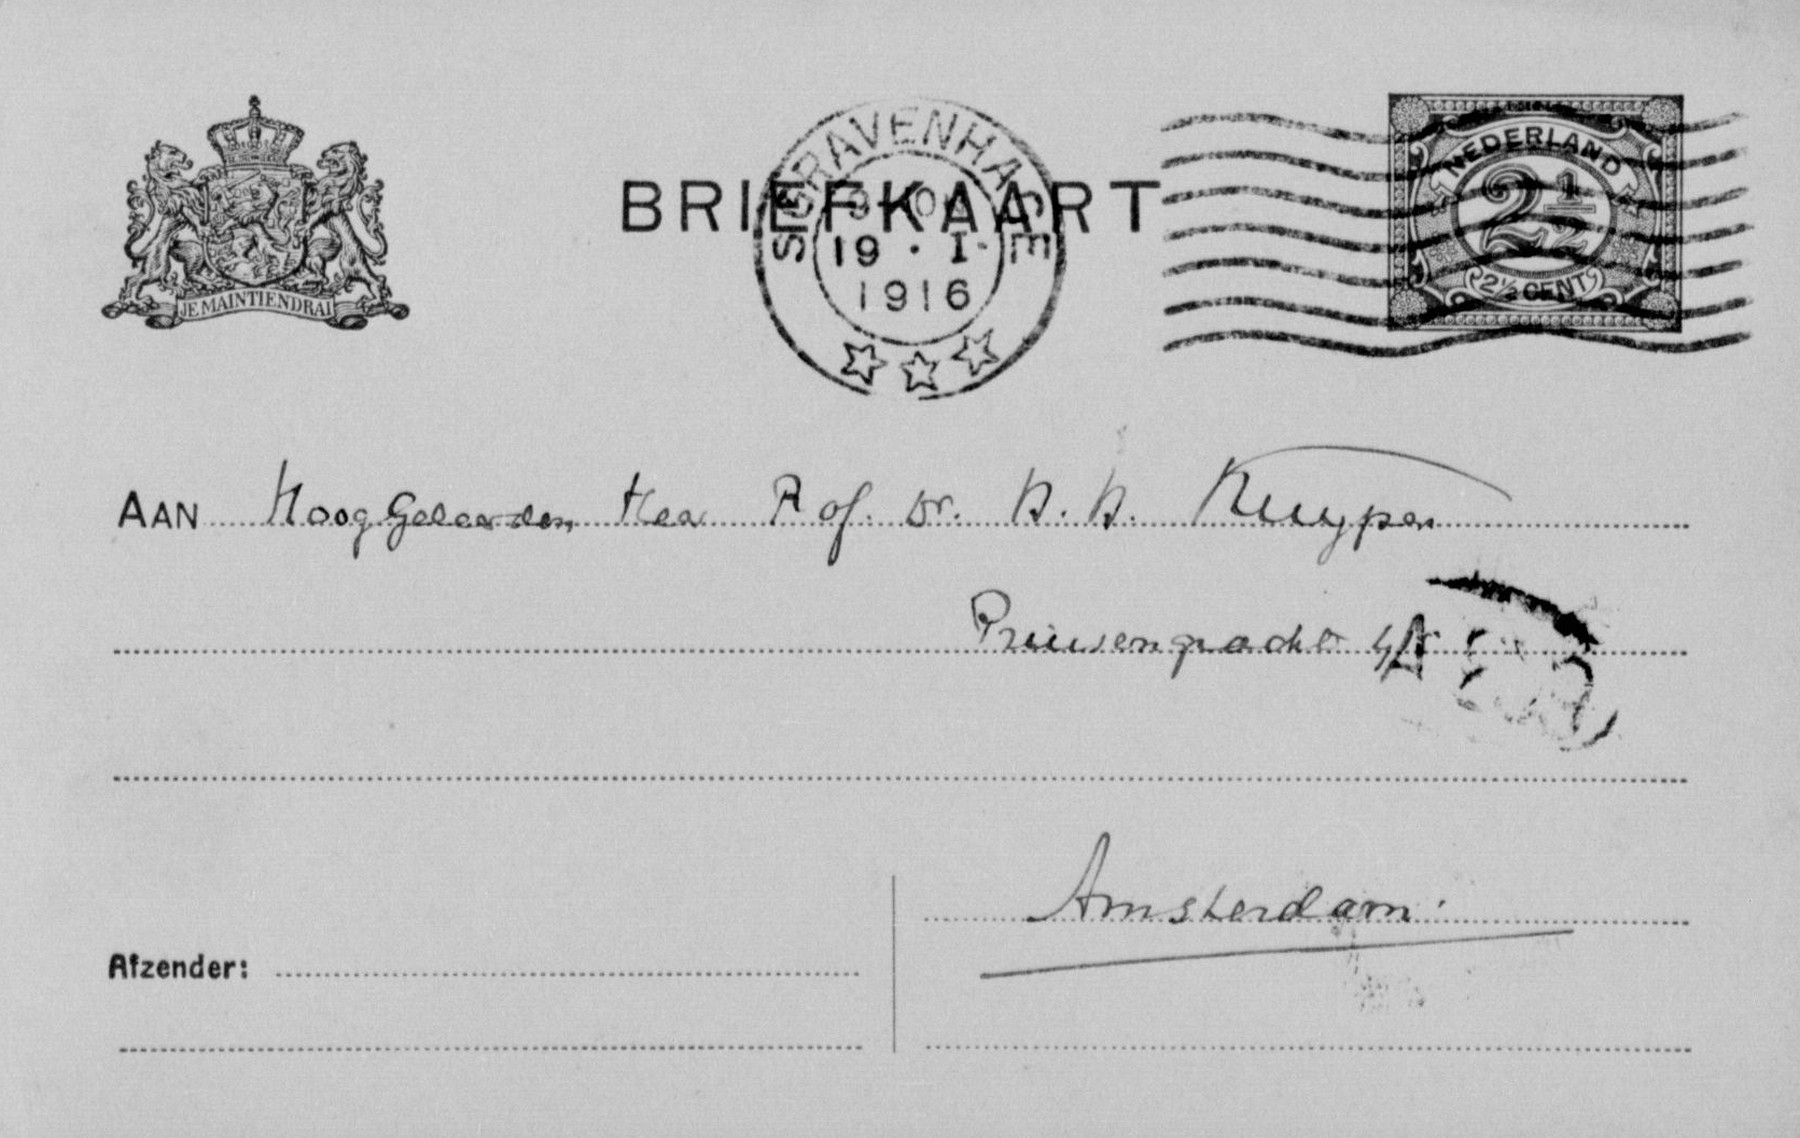 JE MAINTIENDRAI
BRIEFKAART
'S GRAVENHAGE
19 · I
1916
NEDERLAND
2 1/2
2 1/2 CENT
AAN HoogGeleerden Heer Prof. Dr. H. H. Kuyper
Prinsengracht
Amsterdam.
Afzender: